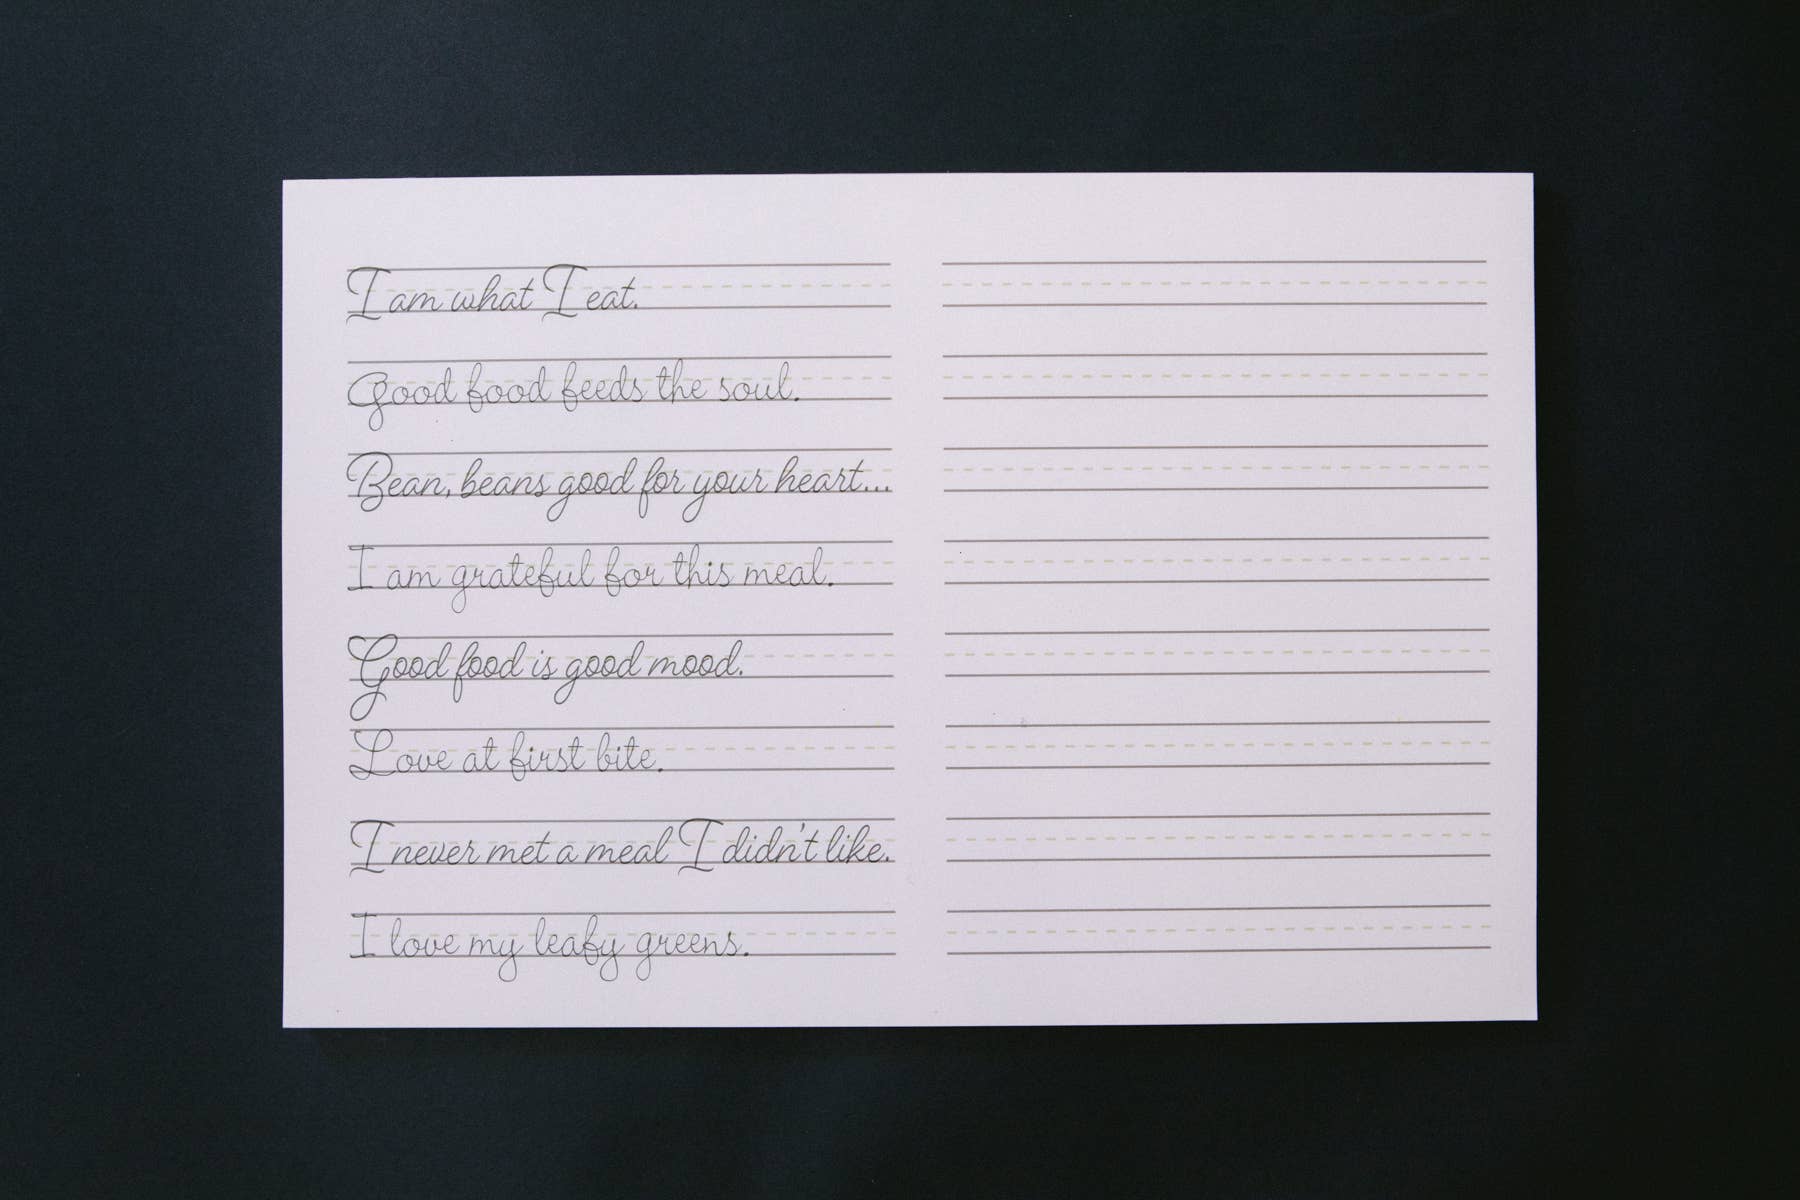 I am what I eat.
Good food feeds the soul.
Bean, beans good for your heart...
I am grateful for this meal.
Good food is good mood.
Love at first bite.
I never met a meal I didn't like.
I love my leafy greens.